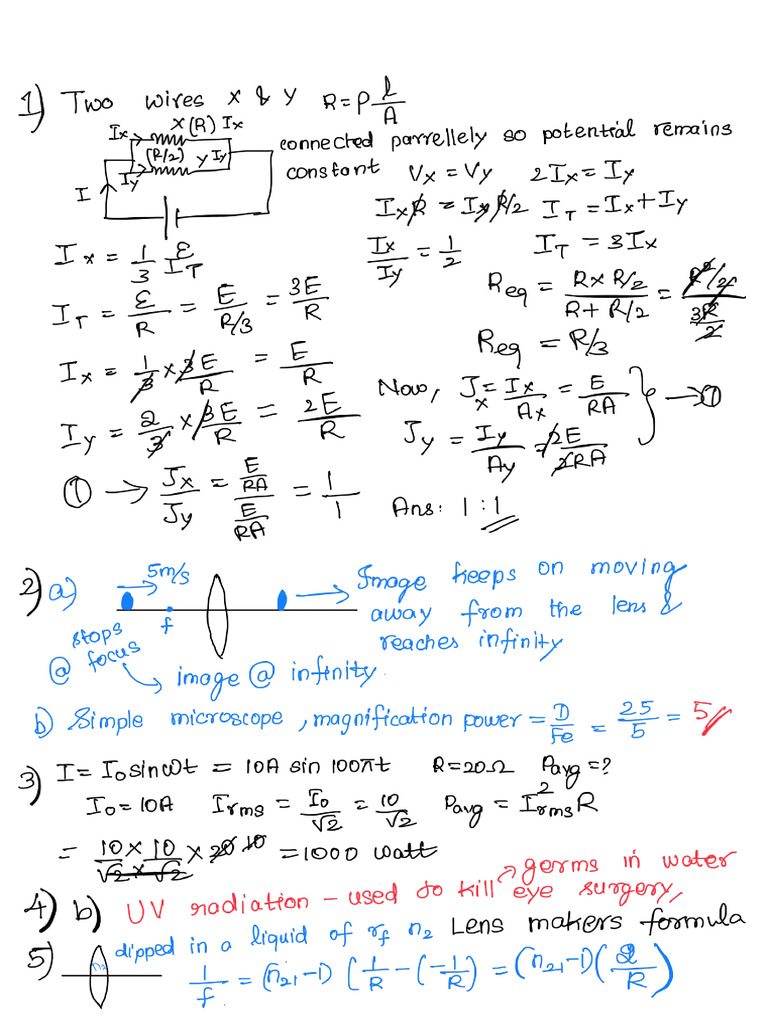 1) Two wires X & Y R = ρ l/A
X(R) Ix
Ix
(R/2) Y Iy
Iy
I
connected parrellely so potential remains
constant Vx = Vy 2Ix = Iy
IxR = IyR/2 IT = Ix + Iy
Ix/Iy = 1/2 IT = 3Ix
Ix = 1/3 IT
IT = ε/R = E/(R/3) = 3E/R
Req = (R x R/2)/(R + R/2) = (R²/2)/(3R/2)
Req = R/3
Ix = 1/3 x 3E/R = E/R
Iy = 2/3 x 3E/R = 2E/R
Now, Jx = Ix/Ax = E/RA
Jy = Iy/Ay = 2E/2RA } → ①
① → Jx/Jy = (E/RA)/(E/RA) = 1/1
Ans: 1:1
2) a) 5m/s
f
Image keeps on moving
away from the lens &
reaches infinity
stops
@ focus
image @ infinity.
b) Simple microscope, magnification power = D/Fe = 25/5 = 5
3) I = I₀ sin ωt = 10A sin 100πt R = 20Ω Pavg = ?
I₀ = 10A Irms = I₀/√2 = 10/√2 Pavg = I²rms R
= (10 x 10)/(√2 x √2) x 20 10 = 1000 watt
4) b) UV radiation - used to kill germs in water
eye surgery,
5) dipped in a liquid of rf n2 Lens makers formula
n2
1/f = (n21 - 1) (1/R - (-1/R)) = (n21 - 1) (2/R)